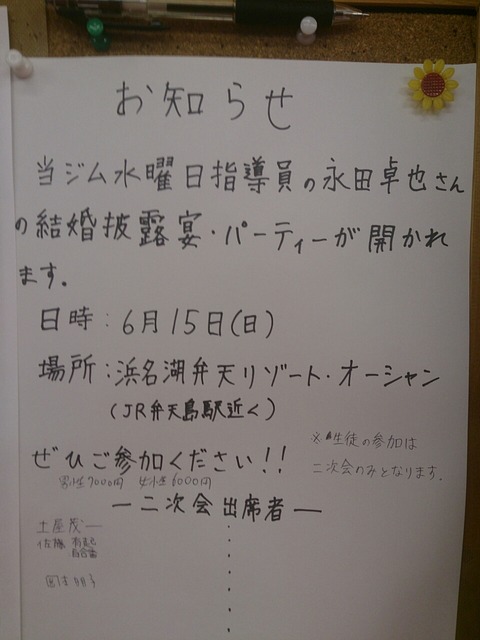 お知らせ
当ジム水曜日指導員の永田卓也さん
の結婚披露宴・パーティーが開かれ
ます。
日時:6月15日(日)
場所:浜名湖弁天リゾート・オーシャン
(JR弁天島駅近く)
※生徒の参加は
二次会のみとなります。
ぜひご参加ください!!
男性7000円 女性6000円
ー二次会出席者ー
土屋茂一
佐藤